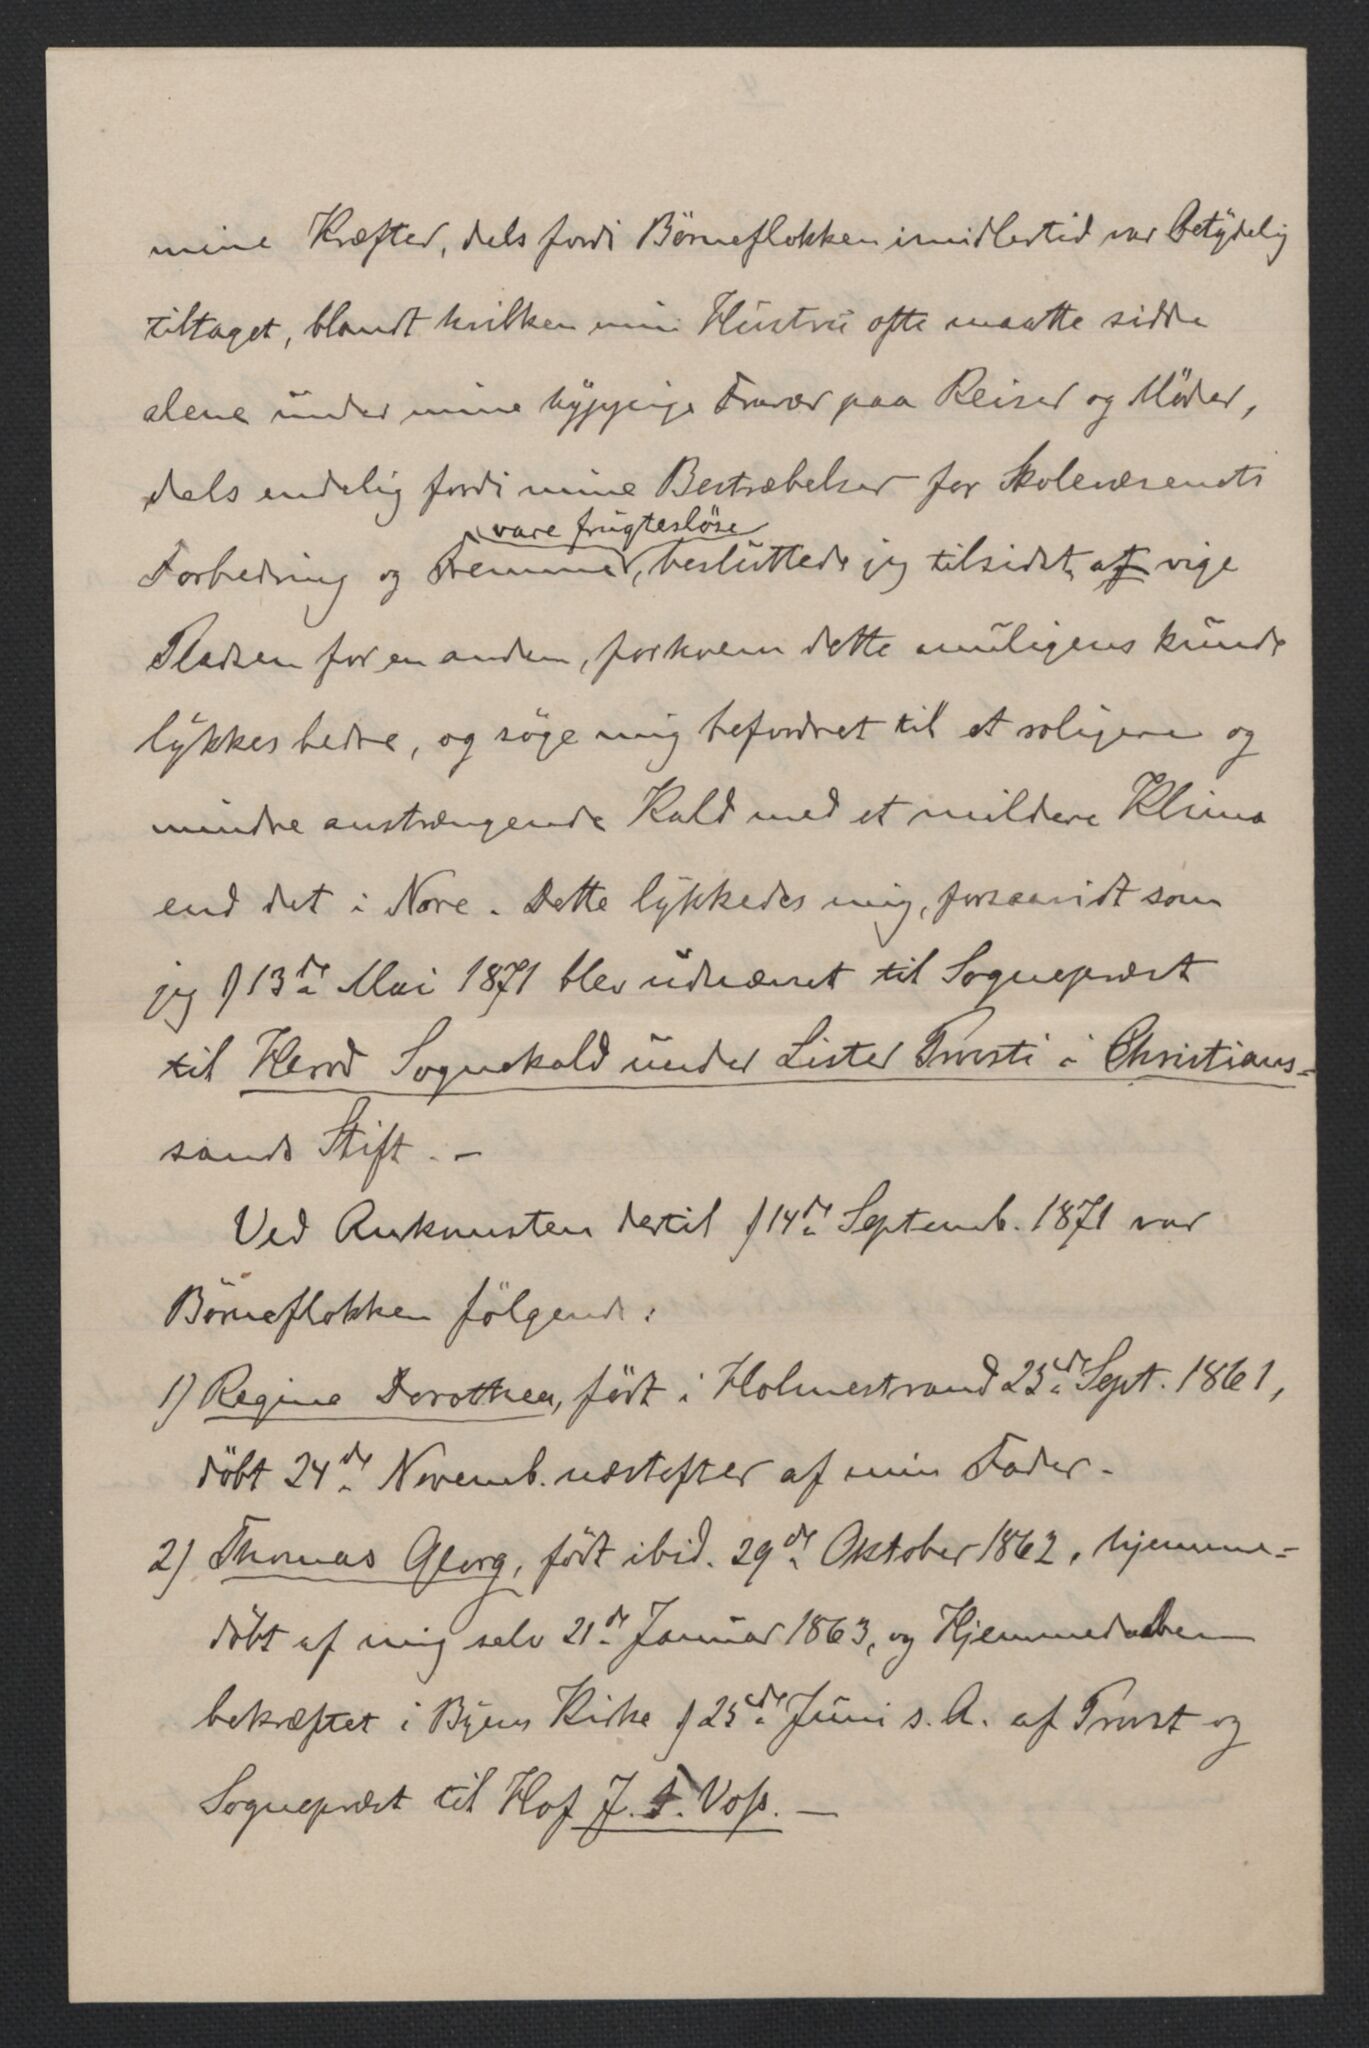 mine Kræfter, dels fordi Börneflokken imidlertid var betydelig
tiltaget, blandt hvilken min Hustru ofte maatte sidde
alene under mine hyppige Fravær paa Reiser og Möder,
dels endelig fordi mine Bestræbelser for Skolevæsenets
vare frugteslöse
Forbedring og Fremme, besluttede jeg tilsidst at vige
Pladsen for en anden, for hvem dette muligens kunde
lykkes bedre, og söge mig befordret til et roligere og
mindre anstrængende Kald med et mildere Klima
end det i Nore. Dette lykkedes mig, forsaavidt som
jeg d 13de Mai 1871 blev udnævnt til Sognepræst
til Herod Sognekald under Lister Provsti i Christians-
sands Stift. -
Ved Ankomsten dertil d 14de Septemb. 1871 var
Börneflokken fölgende:
1) Regine Dorothea, födt i Holmestrand 23de Sept. 1861,
döbt 24de Novemb. næstefter af min Fader.
2) Thomas Georg, födt ibid. 29de Oktober 1862, hjemme-
döbt af mig selv 21de Januar 1863, og Hjemmedaaben
bekræftet i Byens Kirke d 25de Juni s. A. af Provst og
Sognepræst til Hof J. F. Voss. -